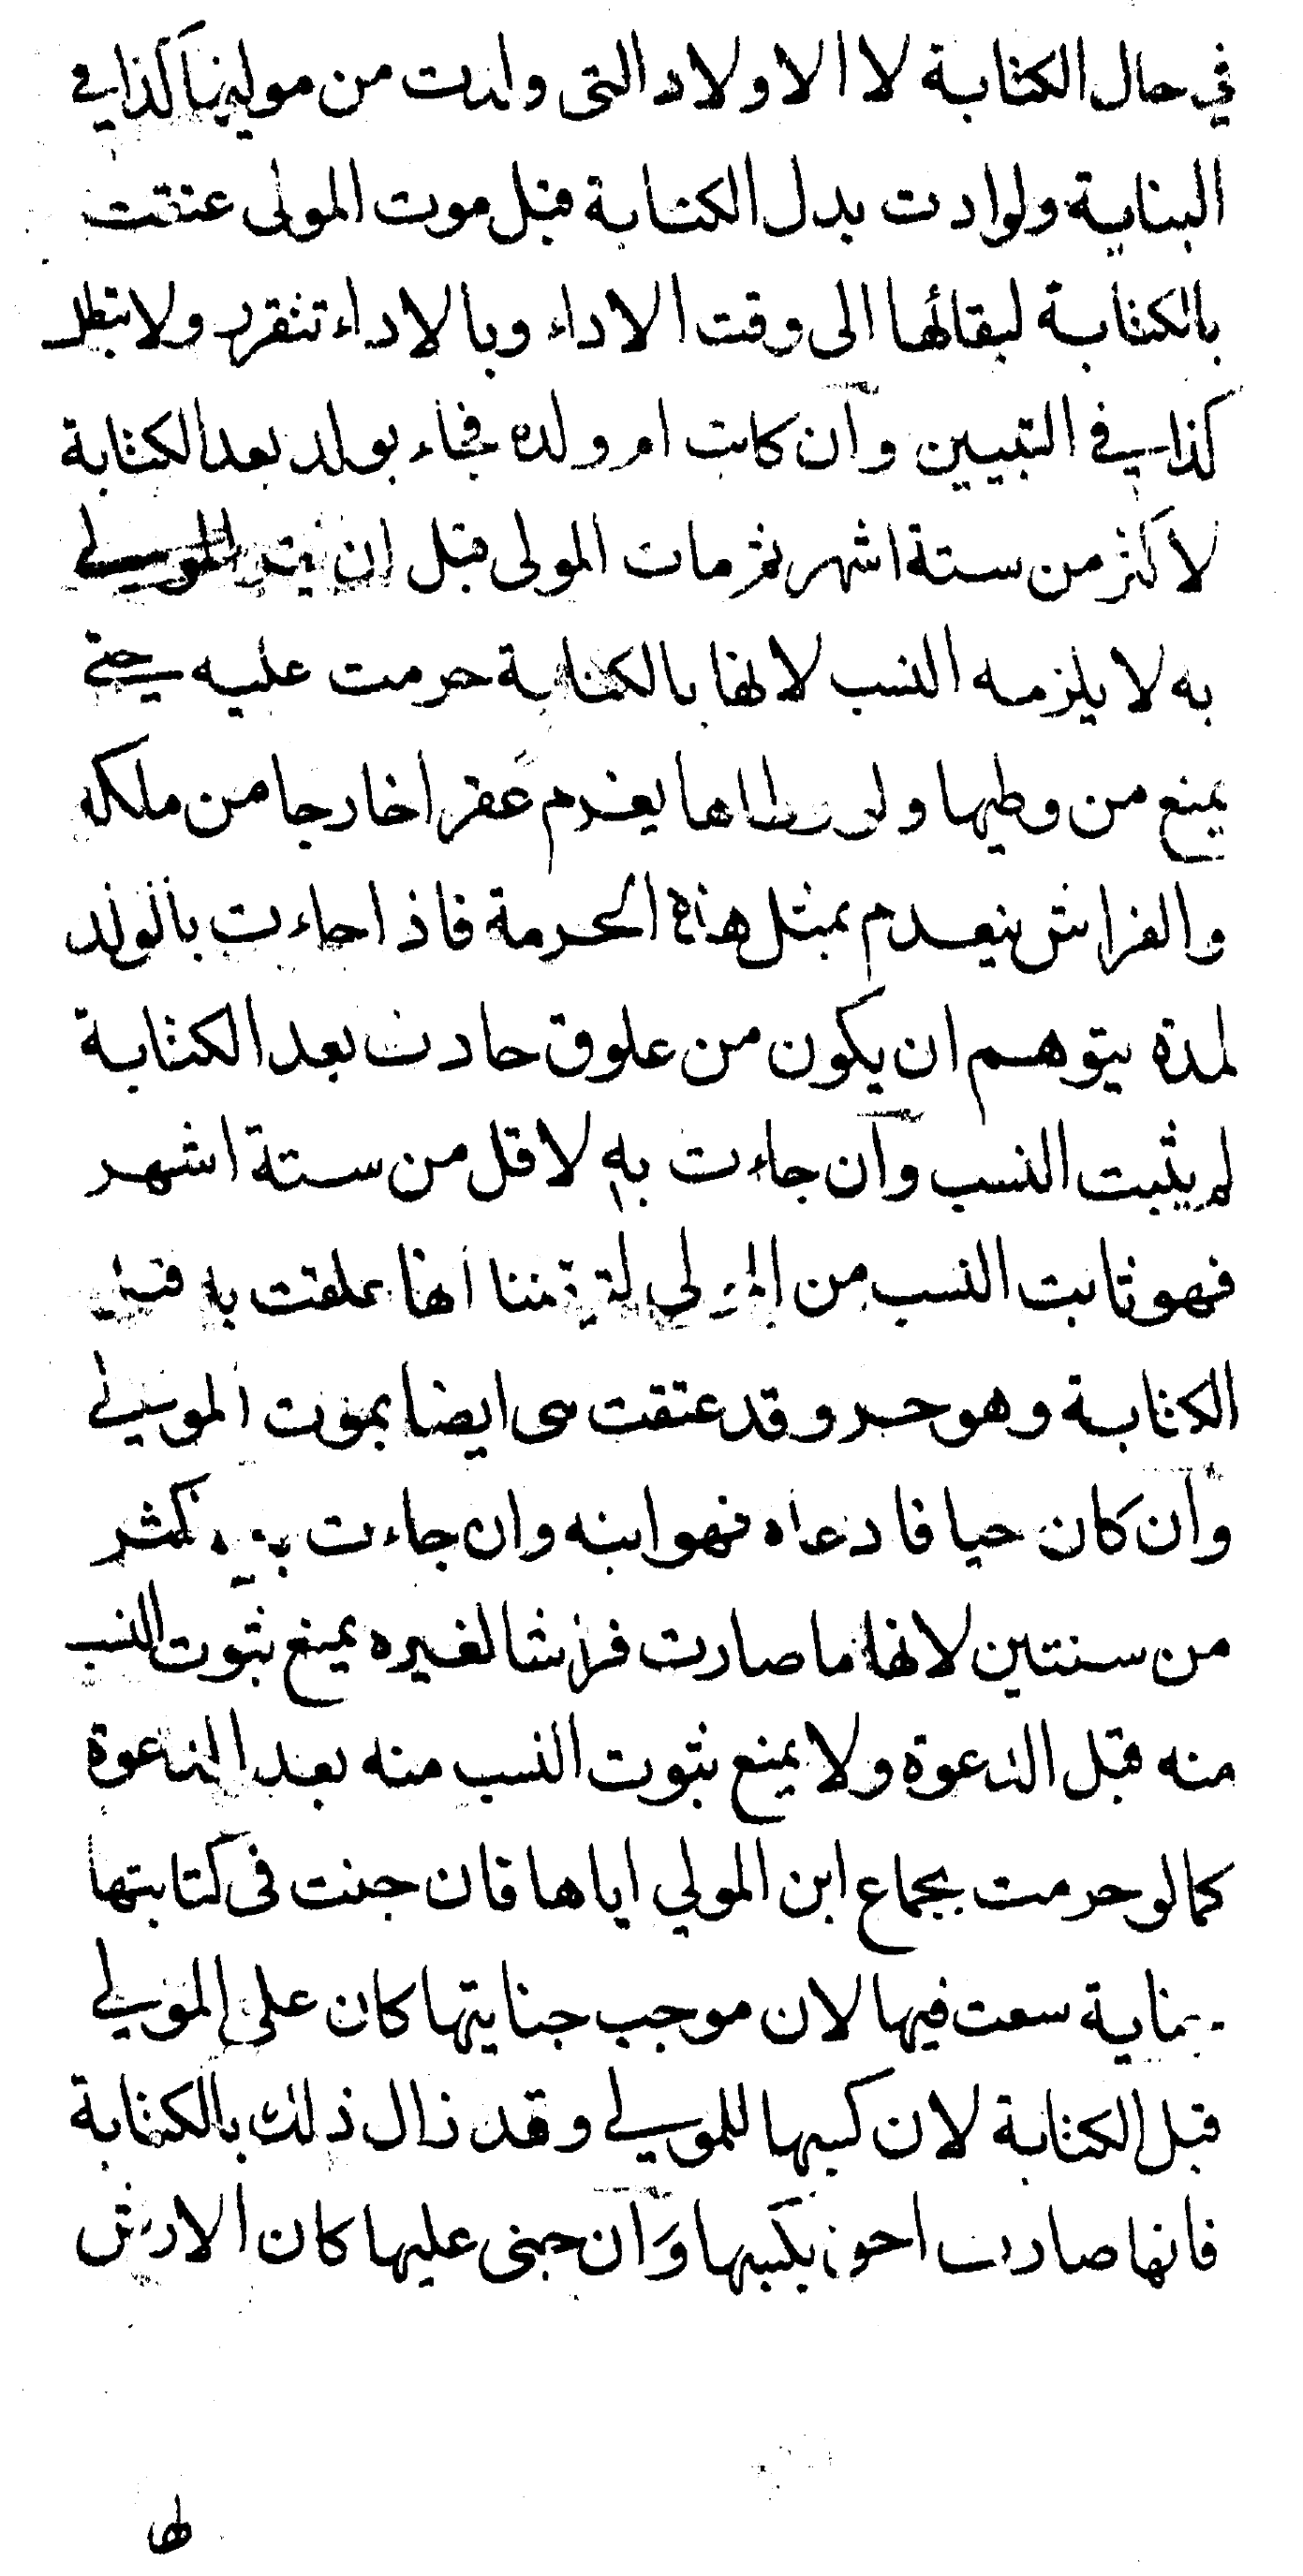 في حال الكتابة لا الاولاد التي ولدت من موليها كذا في
البناية ولوادت بدل الكتابة قبل موت المولى عتقت
بالكتابة لبقائها الى وقت الاداء وبالاداء تتقرر ولا تبطل
كذا في التبيين وان كانت ام ولده فجاء بولد بعد الكتابة
لاكثر من ستة اشهر ثم مات المولى قبل ان يقر المولي
به لا يلزمه النسب لانها بالكتابة حرمت عليه حتي
يمنع من وطيها ولو وطاها يغرم عقرا خارجا من ملكه
والفراش ينعدم بمثل هذه الحرمة فاذا جاءت بالولد
لمدة يتوهم ان يكون من علوق حادث بعد الكتابة
لم يثبت النسب وان جاءت به لاقل من ستة اشهر
فهو ثابت النسب من المولي لتيقننا انها علقت به قبل
الكتابة وهو حر وقد عتقت هي ايضا بموت المولي
وان كان حيا فادعاه فهو ابنه وان جاءت به لاكثر
من سنتين لانها ما صارت فراشا لغيره يمنع ثبوت النسب
منه قبل الدعوة ولا يمنع ثبوت النسب منه بعد الدعوة
كما لو حرمت بجماع ابن المولي اياها فان جنت في كتابتها
جناية سعت فيها لان موجب جنايتها كان على المولي
قبل الكتابة لان كسبها للمولي وقد زال ذلك بالكتابة
فانها صارت احق بكسبها وان جني عليها كان الارش
لها